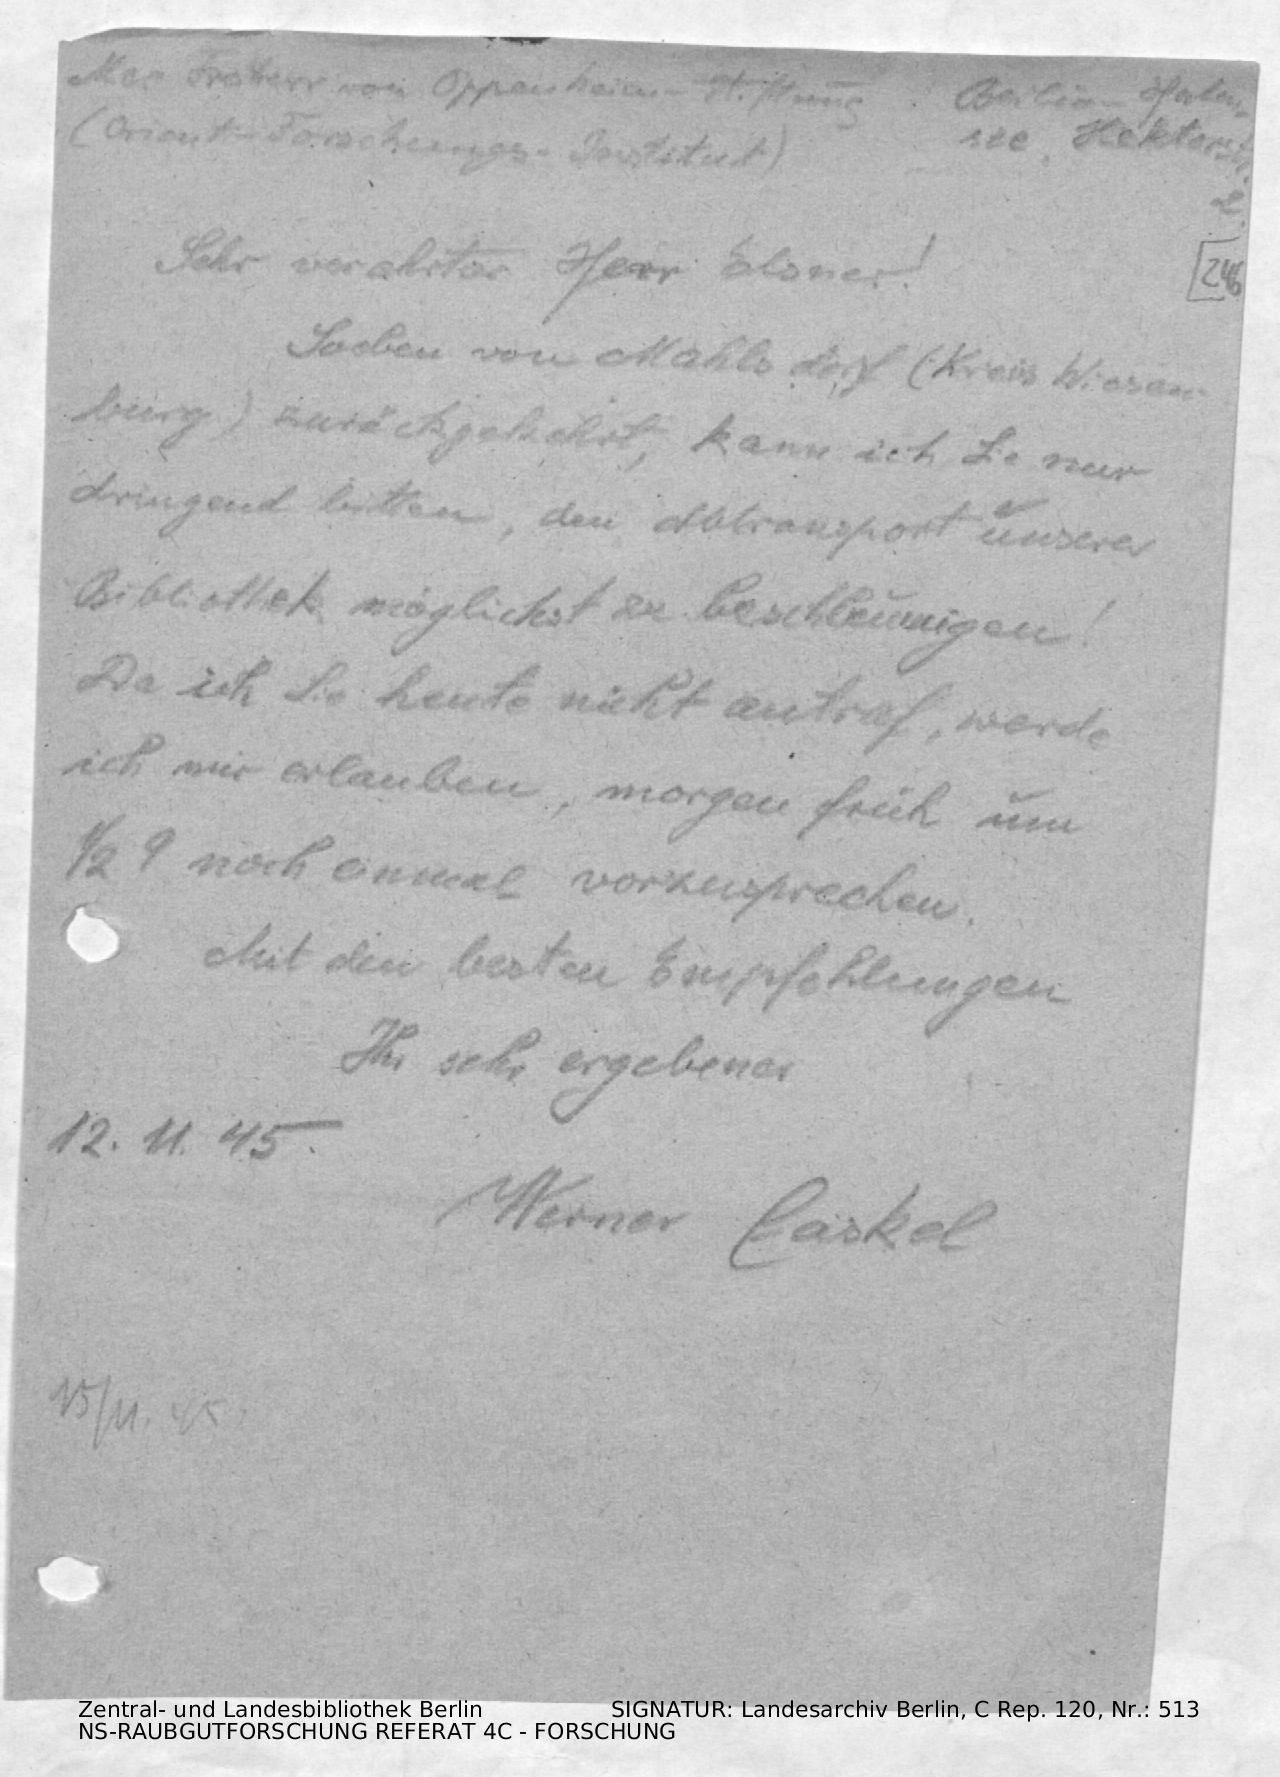 Max Freiherr von Oppenheim-Stiftung Berlin-Halen-
(Orient-Forschungs-Institut) see, Hektorstr.
2.
246
Sehr verehrter Herr Elsner!
Soeben von Mahlsdorf (Kreis Wiesen-
burg) zurückgekehrt, kann ich Sie nur
dringend bitten, den Abtransport unserer
Bibliothek möglichst zu beschleunigen!
Da ich Sie heute nicht antraf, werde
ich mir erlauben, morgen früh um
1/2 9 noch einmal vorzusprechen.
Mit den besten Empfehlungen
Ihr sehr ergebener
12. 11. 45.
Werner Caskel
15/11. 45.
Zentral- und Landesbibliothek Berlin SIGNATUR: Landesarchiv Berlin, C Rep. 120, Nr.: 513
NS-RAUBGUTFORSCHUNG REFERAT 4C - FORSCHUNG